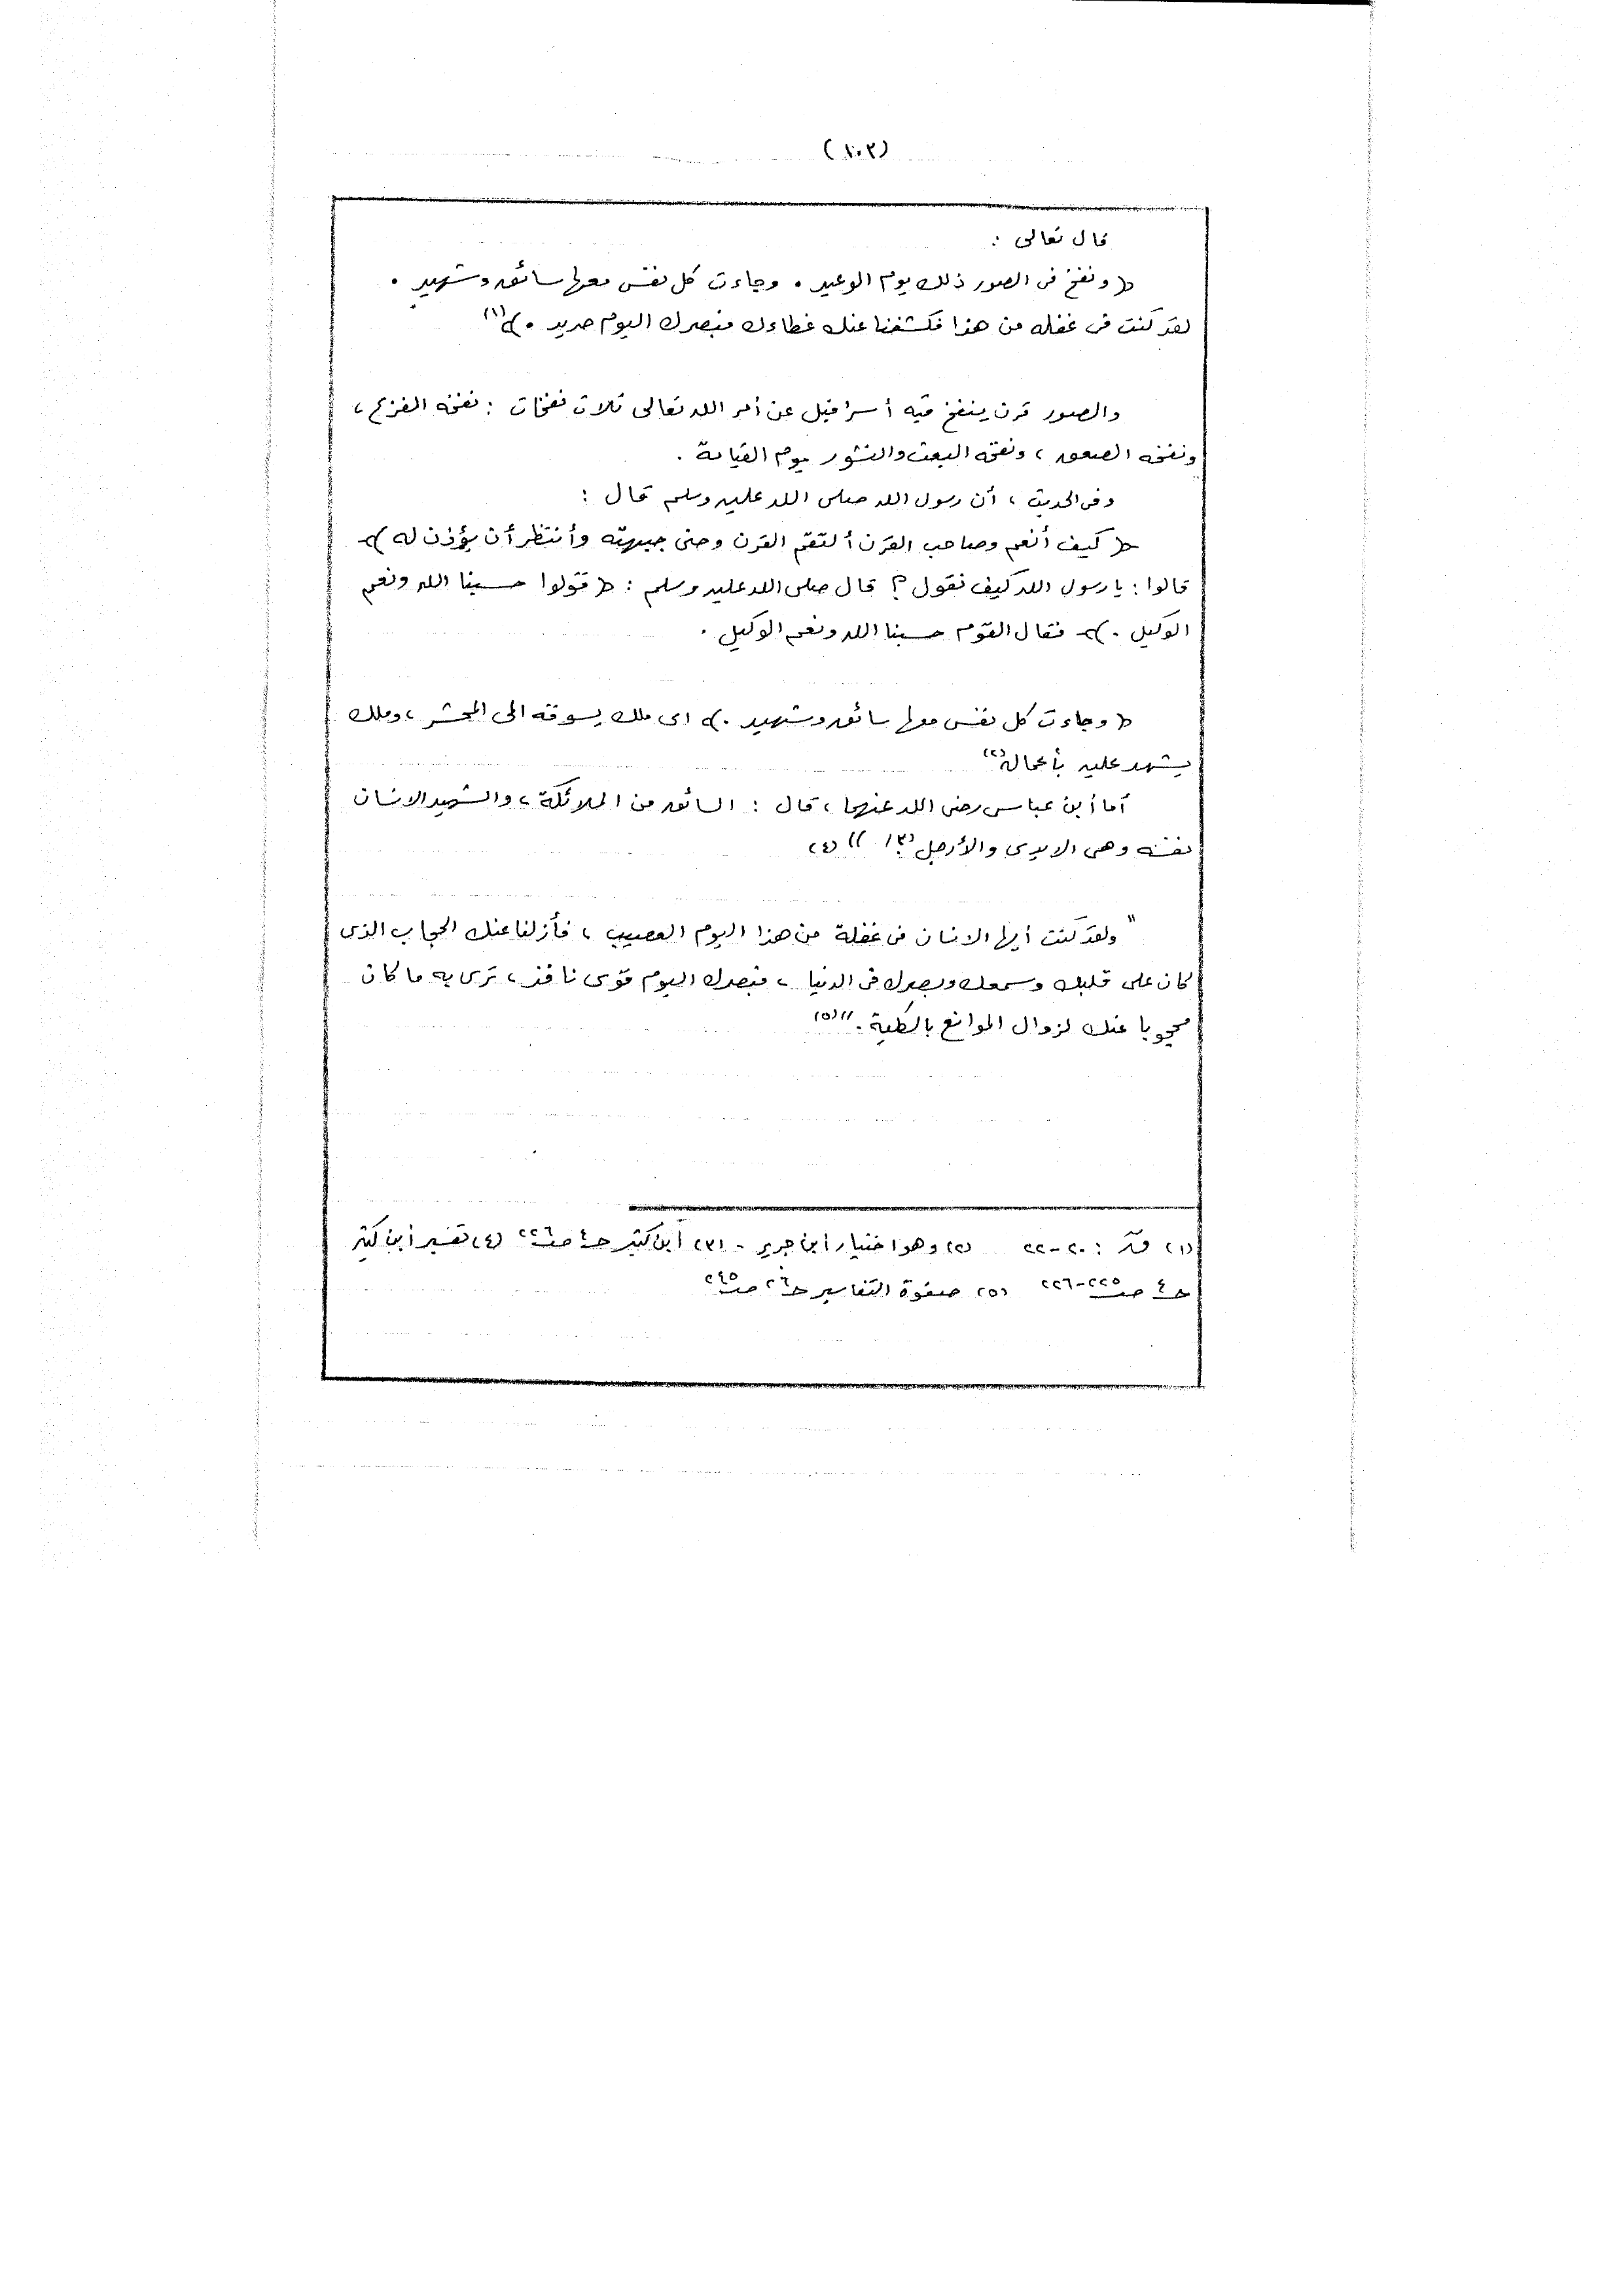 (١٠٢)
قال تعالى :
﴿ ونفخ فى الصور ذلك يوم الوعيد . وجاءت كل نفس معها سائق وشهيد .
لقد كنت فى غفله من هذا فكشفنا عنك غطاءك فبصرك اليوم حديد . ﴾(١)
والصور قرن ينفخ فيه أسرافيل عن أمر الله تعالى ثلاث نفخات : نفخه الفزع ،
ونفخه الصعق ، ونفخه البعث والنشور يوم القيامة .
وفى الحديث ، أن رسول الله صلى الله عليه وسلم قال :
﴿ كيف أنعم وصاحب القرن ألتقم القرن وحنى جبهته وأنتظر أن يؤذن له ﴾
قالوا : يا رسول الله كيف نقول ؟ قال صلى الله عليه وسلم : ﴿ قولوا حسبنا الله ونعم
الوكيل . ﴾ فقال القوم حسبنا الله ونعم الوكيل .
﴿ وجاءت كل نفس معها سائق وشهيد . ﴾ اى ملك يسوقه الى المحشر ، وملك
يشهد عليه بأعماله(٢)
أما أبن عباس رضى الله عنهما ، قال : السائق من الملائكة ، والشهيد الانسان
نفسه وهى الايدى والأرجل (٣) )) (٤)
" ولقد كنت أيها الانسان فى غفلة من هذا اليوم العصيب ، فأزلنا عنك الحجاب الذى
كان على قلبك وسمعك وبصرك فى الدنيا ، فبصرك اليوم قوى نافذ ، ترى به ما كان
محجوبا عنك لزوال الموانع بالكلية . "(٥)
(١) ق : ٢٠-٢٢ (٢) وهو اختيار أبن جرير - (٣) أبن كثير حـ٤ صـ٢٢٦ (٤) تفسير أبن كثير
حـ٤ صـ٢٢٥-٢٢٦ (٥) صفوة التفاسير حـ٢٦ صـ٢٤٥